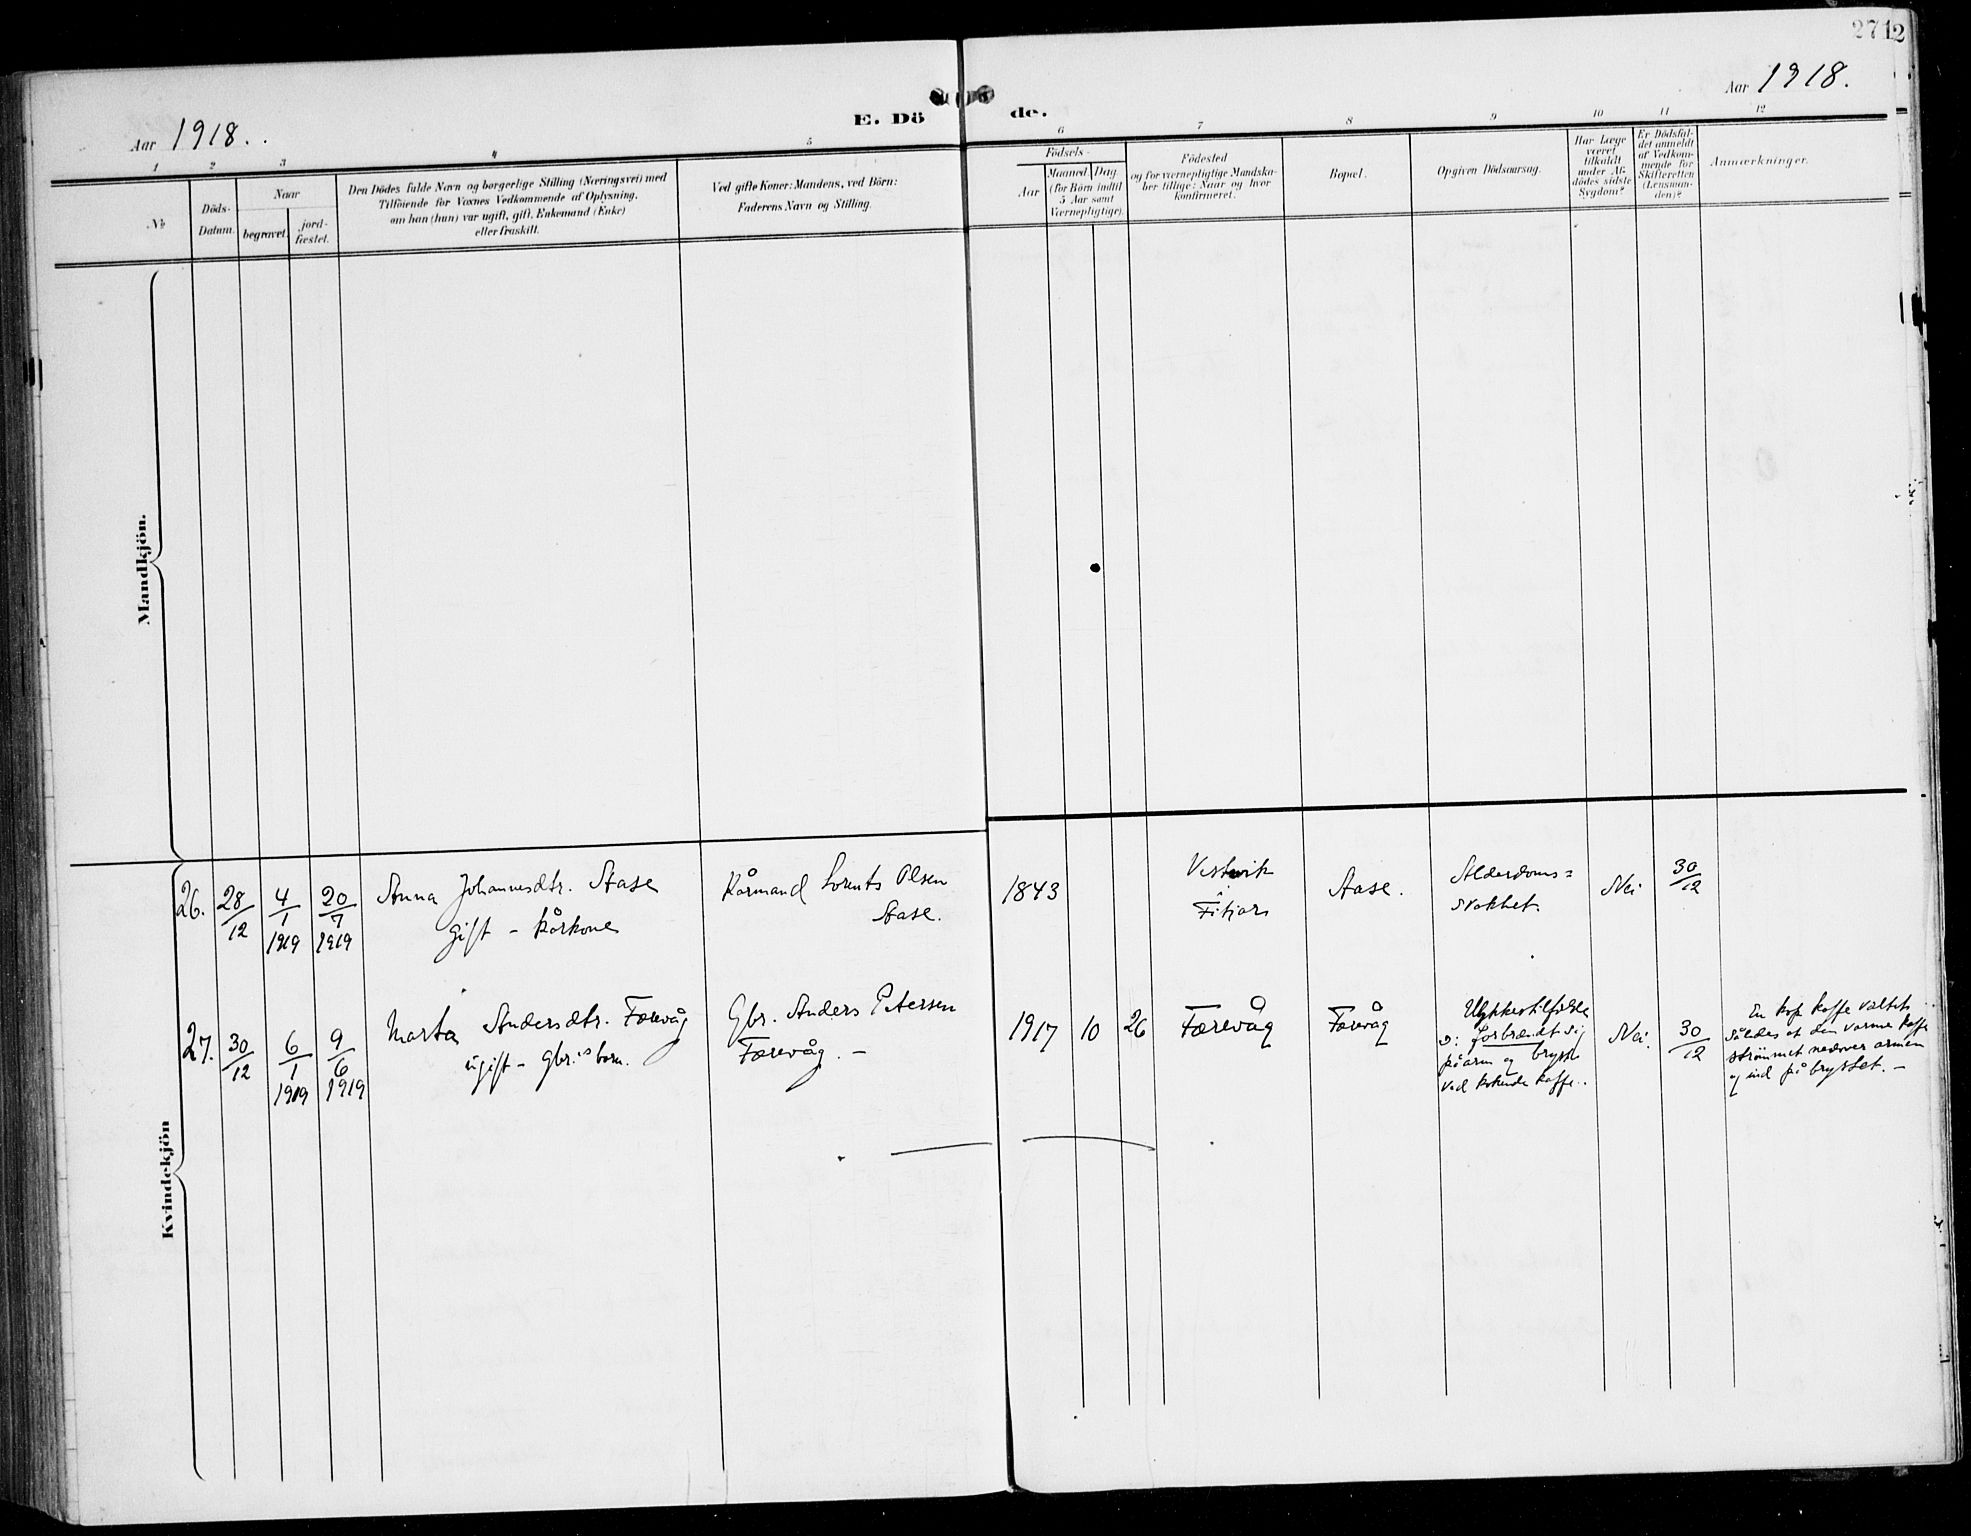 2712
Aar 1918.
E. Döde.
Aar 1918.
1
2
3
4
5
6
7
8
9
10
11
12
№
Döds-
Datum.
Naar
begravet.
jord-
fæstet.
Den Dödes fulde Navn og borgerlige Stilling (Næringsvei) med
Tilföiende for Voxnes Vedkommende af Oplysning,
om han (hun) var ugift, gift, Enkemand (Enke)
eller fraskilt.
Ved gifte Koner: Mandens, ved Börn:
Faderens Navn og Stilling.
Födsels-
Aar
Maaned
Dag
(for Börn indtil
5 Aar samt
Værnepligtige).
Födested
og for værnepligtige Mandska-
ber tillige: Naar og hvor
konfirmeret.
Bopæl.
Opgiven Dödsaarsag.
Har Læge
været
tilkaldt
under Af-
dödes sidste
Sygdom?
Er Dödsfal-
det anmeldt
af Vedkom-
mende for
Skifteretten
(Lensman-
den)?
Anmærkninger.
Mandkjön.
Kvindekjön
26.
28/12
4/1 1919
20/7 1919
Anna Johannesdtr. Aase
gift - kårkone
Kårmand Lorents Olsen
Aase.
1843
Vestvik
Fitjar
Aase.
Alderdoms=
svakhet.
Nei
30/12
27.
30/12
6/1 1919
9/6 1919
Marta Andersdtr. Færevåg
ugift - Gbr.s barn.
Gbr. Anders Petersen
Færevåg. -
1917
10
26
Færevåg
Færevåg
Ulykkestilfælde
ɔ: forbrændt sig
på arm og bryst
ved kokende kaffe.
Nei.
30/12
En kop kaffe væltet
således at den varme kaffe
strömmet nedover armen
og ind på brystet. -